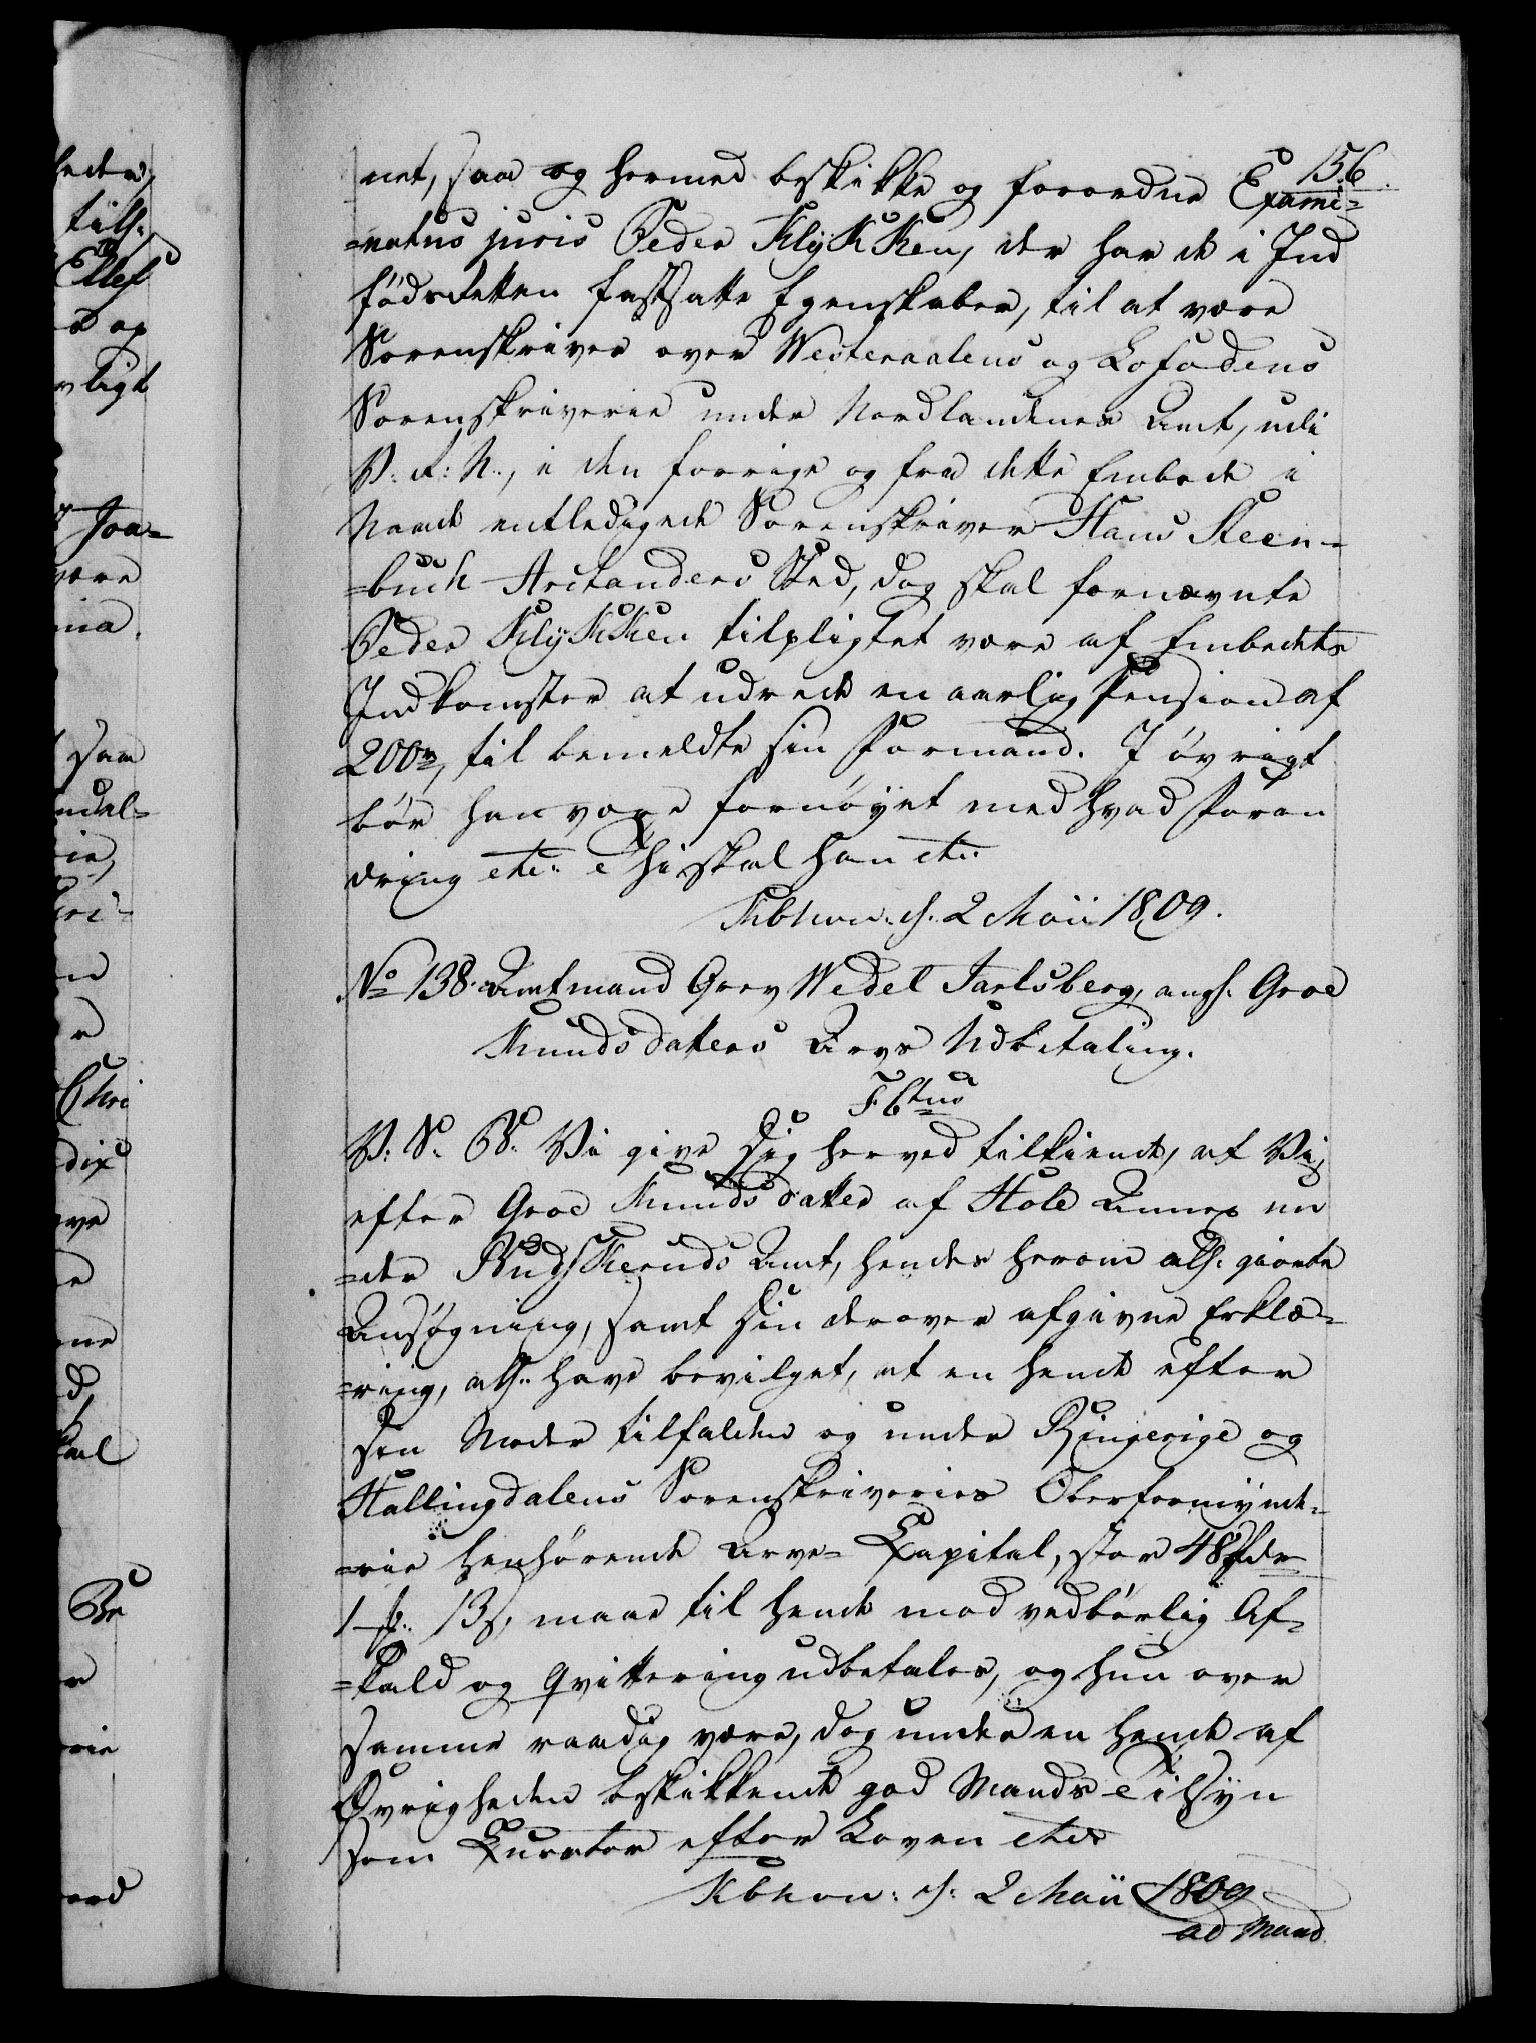 156
net, saa og hermed beskikke og forordne Exami-
=natus juris Peder KlykKen, der har de i Ind
fødsretten fastsatte Egenskaber, til at være
Sorenskriver over Westeraalens og Lofodens
Sorenskriverie under Nordlandenes Amt, udi
V. R: N., i den forrige og fra dette Embede i
Naade entledigede Sorenskriver Hans Steen-
=buch Arctanders Sted, dog skal fornævnte
Peder KlykKen tilpligtet være af Embedets
Indkomster at udrede en aarlig Pension af
200 rd, til bemeldte sin Formand. I øvrigt
bør han være fornøyet med hvad Foran
dring etc. Thi skal han etc.
Kbhvn. d. 2 Maii 1809.
No 138. Amtmand Grev Wedel Jarlsberg, angh. Groe
Knudsdatters Arvs Udbetaling.
F. 6tus
V. S. G. Vi give Dig herved tilkiende, at Vi,
efter Groe Knudsdatter af Hole Annex un
=der Budskeruds Amt, hendes herom allh. giorte
Ansøgning, samt Din derover afgivne Erklæ-
=ring, allh. have bevilget, at en hende efter
sin Moder tilfalden og under Ringerige og
Hallingdalens Sorenskriveries Overformynde-
=rie henhørende Arve- Kapital, stor 48 Rdr
1 ₻. 13 ß, maae til hende mod vedbørlig Af-
=kald og Qvittering udbetales, og hun over
samme raadig være, dog under en hende af
Øvrigheden beskikkende god Mands Tilsyn
som Kurator efter Loven etc.
Kbhvn: d. 2 Maii 1809
ad Mand.